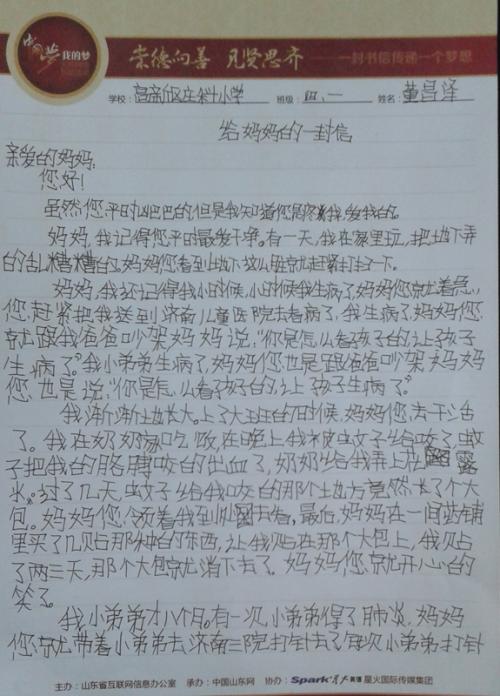 中国梦 我的梦
崇德向善 见贤思齐 一封书信传递一个梦想
学校: 高新区庄科小学 班级: 四、一 姓名: 董昌泽
给妈妈的一封信
亲爱的妈妈:
您好!
虽然您平时凶巴巴的但是我知道您是疼我,爱我的。
妈妈,我记得您平时最爱干净。有一天,我在家里玩,把地下弄
的乱糟糟的,妈妈您看到地下这么脏就赶紧打扫了一下。
妈妈,我还记得我小时候,小时候我生病了,妈妈您就着急,
您赶紧把我送到济南儿童医院去看病了,我生病了,妈妈您
就跟我爸爸吵架妈妈说:“你是怎么看孩子的,让孩子
生病了”我小弟弟生病了,妈妈您也是跟爸爸吵架妈妈
您也是说:“你是怎么看孩子的让孩子生病了”
我渐渐地长大。上了大班的时候,妈妈您去干活
了。我在奶奶家吃饭,在晚上我被蚊子给咬了,蚊
子把我的胳膊咬的出血了,奶奶给我弄上花露
水。过了几天,蚊子给我咬的那个地方竟然长了个大
包。妈妈您领着我到处去看,最后,妈妈在一间店铺
里买了几贴那种的东西,让我贴在那个大包上,我贴
了两三天,那个大包就消下去了。妈妈您就开心的
笑了。
我小弟弟才八个月。有一次,小弟弟得了肺炎,妈妈
您就带着小弟弟去济南三院打针去了每次小弟弟打针
主办:山东省互联网信息办公室 承办:中国山东网 协办:Spark星火英语 星火国际传媒集团